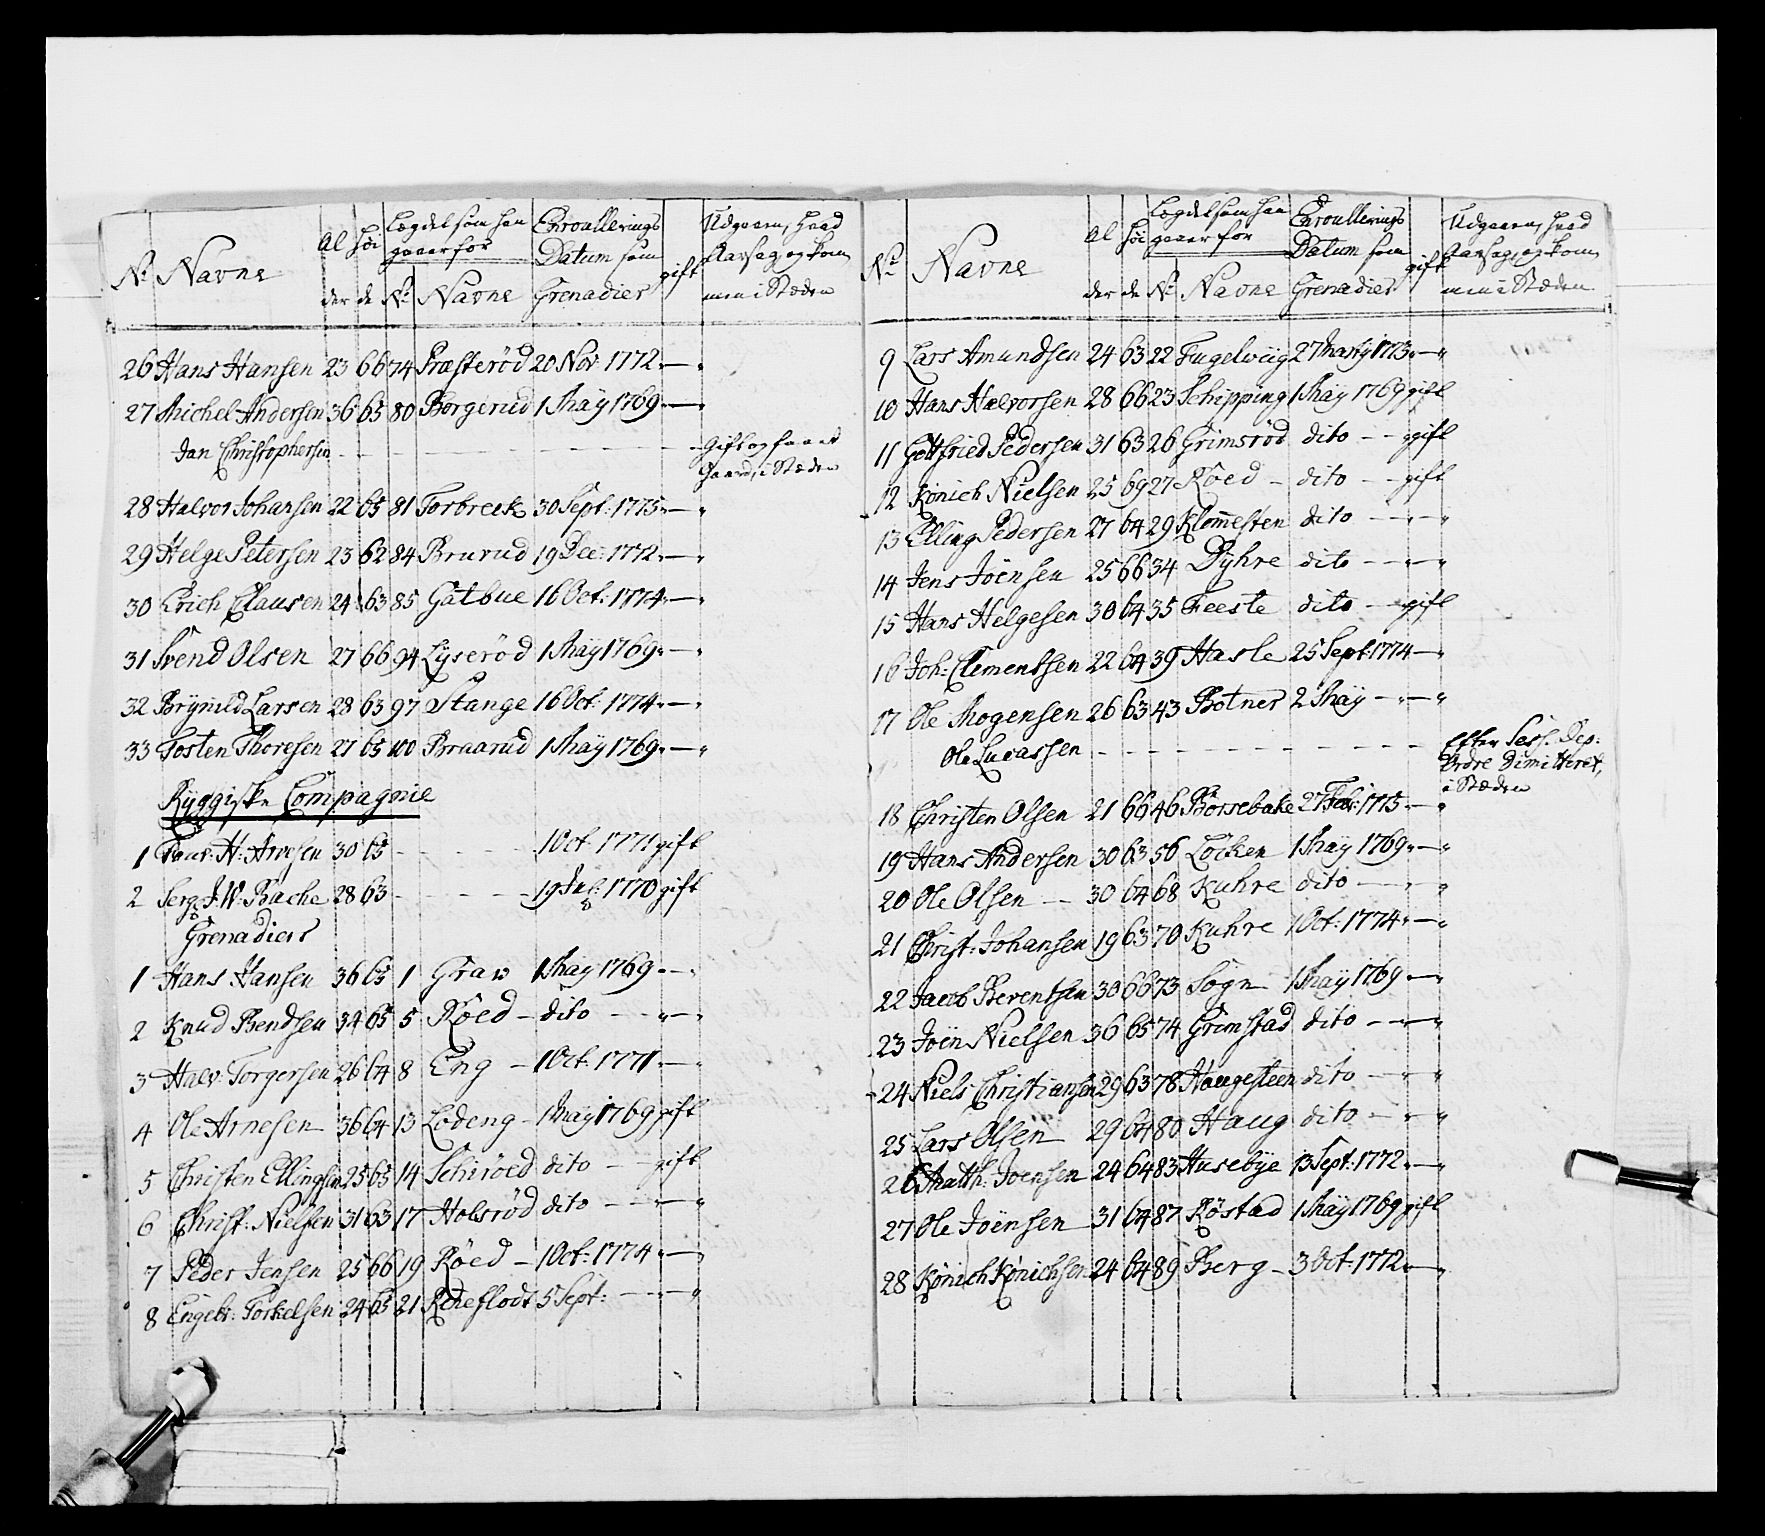 No Navne Al der Höi de Lægdet som han gaaer for No Navne Enroullerings Datum som Grenadier gift Udgaaen, hvad Aarsag, og kommen i Stæden
26 Hans Hansen 23 66 74 Præsteröd 20 Nov: 1772 " — "
27 Michel Andersen 36 65 80 Borgerud 1 Maÿ 1769 " — "
Jan Christophersen - - - - - - - Gift og faaet
Gaard, i Stæden
28 Halvor Johansen 22 65 81 Torbreek 30 Sept: 1775 " — "
29 Helge Petersen 23 62 84 Brurud 19 Dec: 1772 " — "
30 Erich Clausen 24 63 85 Gatbue 16 Oct: 1774 " — "
31 Svend Olsen 27 66 94 Lÿseröd 1 Maÿ 1769 " — "
32 Brÿnild Larsen 28 63 97 Stange 16 Oct: 1774 " — "
33 Tosten Thoresen 27 65 100 Braarud 1 Maÿ 1769 " — "
Rÿggiske Compagnie
1 Four: H: Arvesen 30 65 - - - - 1 Oct: 1771 gift
2 Serg: J: W: Bache 28 63 - - - - 19 Jul: 1770 gift
Grenadiers
1 Hans Hansen 36 65 1 Grav 1 Maÿ 1769 " — "
2 Knud Bendsen 34 65 5 Röed - dito - - " — "
3 Halv: Torgersen 26 64 8 Eng - 1 Oct: 1771 " — "
4 Ole Arnesen 36 64 13 Lodeng - 1 Maÿ 1769 gift
5 Christen Ellingsen 25 65 14 Schröed dito - - gift
6 Christ: Nielsen 31 63 17 Holsröd dito - - " — "
7 Peder Jensen 25 66 19 Röed - 1 Oct: 1774 " — "
8 Engebr: Torkelsen 24 65 21 Reneflodt 5 Sept: - - " — "
No Navne Al der Höi de Lægdet som han gaaer for No Navne Enroullerings Datum som Grenadier gift Udgaaen, hvad Aarsag, og kommen i Stæden
9 Lars Amundsen 24 63 22 Fugelviig 27 Marty 1773 " — "
10 Hans Halvorsen 28 66 23 Schipping 1 Maÿ 1769 gift
11 Gottfried Pedersen 31 63 26 Grimsröd dito - - gift
12 Könich Nielsen 25 69 27 Röed - dito - - gift
13 Elling Pedersen 27 64 29 Klom̄esten dito - - " — "
14 Jens Jöensen 25 66 34 Dÿhre dito - - " — "
15 Hans Helgesen 30 64 35 Feeste dito - - gift
16 Joh: Clementsen 22 64 39 Hasle 25 Sept: 1774 — "
17 Ole Mogensen 26 63 43 Botner 2 Maÿ - " — "
Ole Lucassen - - - - - - - Efter Sess: Dep:
Ordre Dimitteret,
i Stæden
18 Christen Olsen 21 66 46 Börrebake 27 Feb: 1775 — "
19 Hans Andersen 30 63 56 Löcken 1 Maÿ 1769 " — "
20 Ole Olsen - - 30 64 68 Kuhre dito - - "
21 Christ: Johansen 19 63 70 Kuhre 1 Oct: 1774 " — "
22 Jacob Berentsen 30 66 73 Sogn 1 Maÿ 1769 — "
23 Jöen Nielsen 36 65 74 Grimstad dito - - "
24 Niels Christiansen 29 63 78 Haugesteen dito - - "
25 Lars Olsen 29 64 80 Haug dito - - "
26 Matth: Joensen 24 64 83 Husebÿe 13 Sept: 1772 " — "
27 Ole Jöensen 31 64 87 Röstad 1 Maÿ 1769 gift
28 Könich Könichsen 24 64 89 Berg - 3 Oct: 1772 " — "